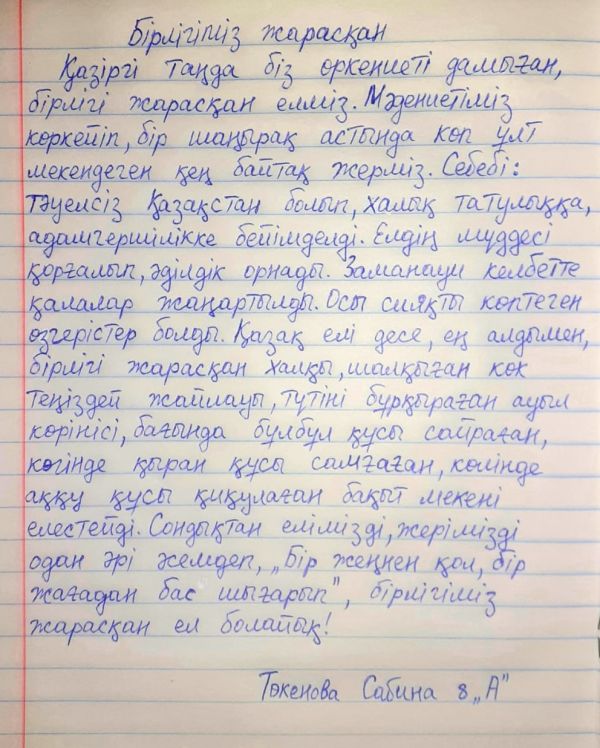 Бірлігіміз жарасқан
Қазіргі таңда біз өркениеті дамыған,
бірлігі жарасқан елміз. Мәдениетіміз
көркейіп, бір шаңырақ астында көп ұлт
мекендеген кең байтақ жерміз. Себебі:
тәуелсіз Қазақстан болып, халық татулыққа,
адамгершілікке бейімделді. Елдің мүддесі
қорғалып, әділдік орнады. Заманауи келбетте
қалалар жаңартылды. Осы сияқты көптеген
өзгерістер болды. Қазақ елі десе, ең алдымен,
бірлігі жарасқан халқы, шалқыған көк
теңіздей жайлауы, түтіні бұрқыраған ауыл
көрінісі, бағында бұлбұл құсы сайраған,
көгінде қыран құсы самғаған, көлінде
аққу құсы қиқулаған бақыт мекені
елестейді. Сондықтан елімізді, жерімізді
одан әрі әсемдеп, „Бір жеңнен қол, бір
жағадан бас шығарып", бірлігіміз
жарасқан ел болайық!
Төкенова Сабина 8 „А"